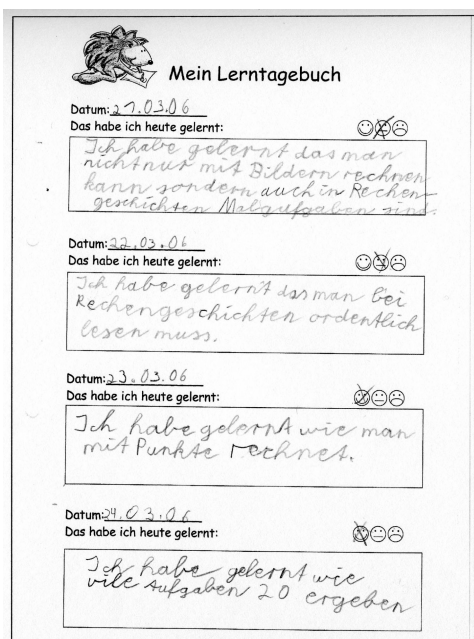 Mein Lerntagebuch
Datum: 21.03.06
Das habe ich heute gelernt:
Ich habe gelernt das man
nicht nur mit Bildern rechnen
kann sondern auch in Rechen-
geschichten Malaufgaben sind.
Datum: 22.03.06
Das habe ich heute gelernt:
Ich habe gelernt das man bei
Rechengeschichten ordentlich
lesen muss.
Datum: 23.03.06
Das habe ich heute gelernt:
Ich habe gelernt wie man
mit Punkte rechnet.
Datum: 24.03.06
Das habe ich heute gelernt:
Ich habe gelernt wie
vile Aufgaben 20 ergeben